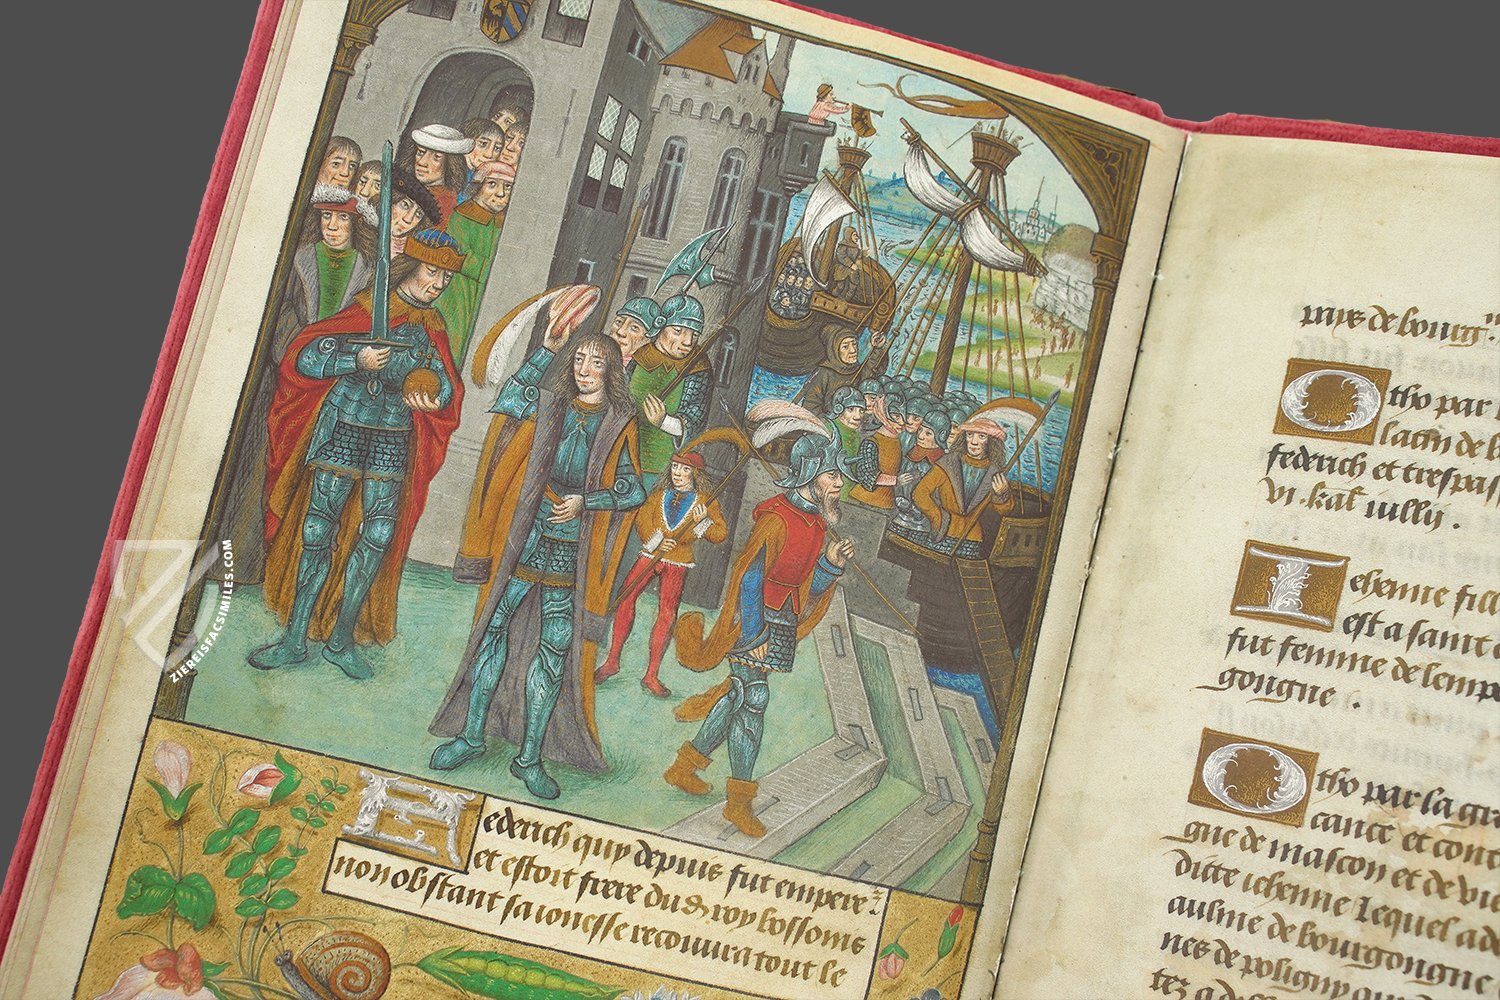 Federich quy depuis fut empere
et estoit frere dud roy bossoms
non obstant sa ionesse recouura tout le
pays de bourg
Otho par
latin de b
federich et trespas
vi . kal iullij .
Iehenne fill
est a saint
fut femme de lempe
gongne .
Otho par la gra
cance et cont
gne de mascon et de vie
ditte iehenne Lequel ad
aulme de bourgongne
nes de poligny qu
tez
ZIEREISFACSIMILES.COM